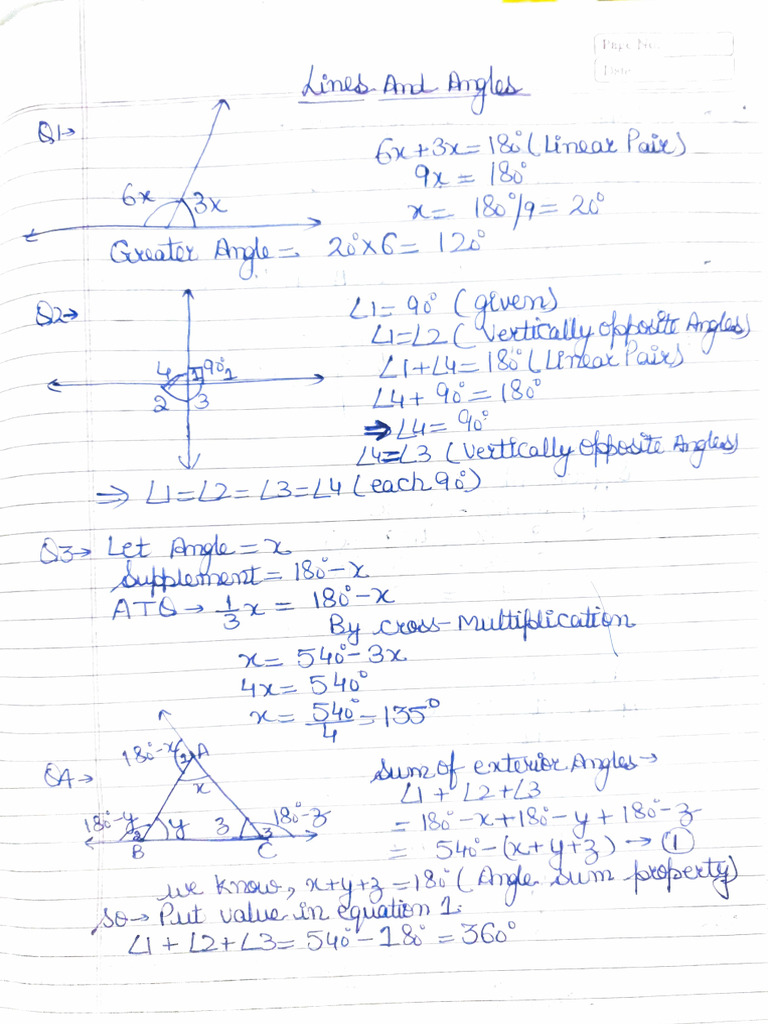 Page No.
Date
Lines And Angles
Q1→
6x 3x
6x+3x=180° (Linear Pair)
9x = 180°
x = 180°/9 = 20°
Greater Angle = 20°×6 = 120°
Q2→
4 90° 1
2 3
∠1=90° (given)
∠1=∠2 (Vertically opposite Angles)
∠1+∠4=180° (Linear Pair)
∠4+90°=180°
⇒∠4=90°
∠4=∠3 (Vertically opposite Angles)
⇒ ∠1=∠2=∠3=∠4 (each 90°)
Q3→ Let Angle = x
Supplement = 180°-x
ATQ → 1/3 x = 180°-x
By cross-Multiplication
x = 540°-3x
4x = 540°
x = 540°/4 = 135°
Q4→
180°-x 2 A
x
180°-y 2 y 3 3 180°-z
B C
Sum of exterior Angles→
∠1+∠2+∠3
= 180°-x+180°-y+180°-z
= 540°-(x+y+z) → ①
we know, x+y+z=180° (Angle sum property)
So→ Put value in equation 1.
∠1+∠2+∠3=540°-180°=360°